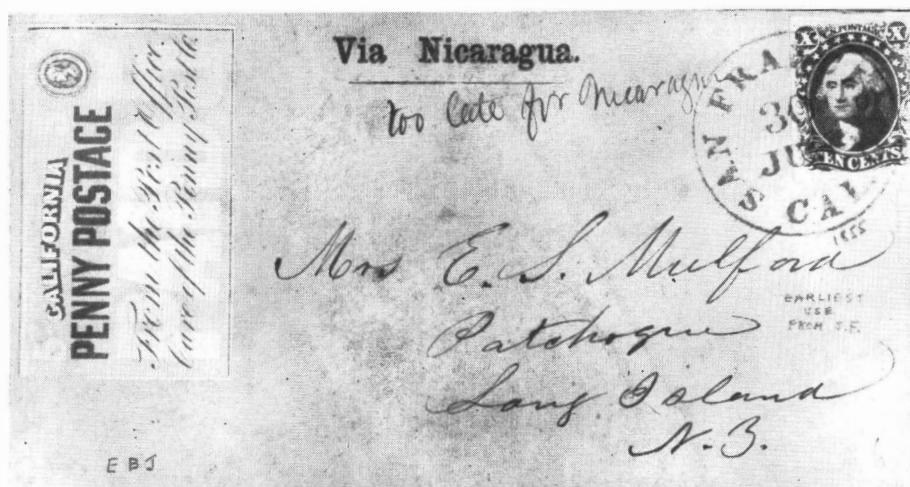 CALIFORNIA
PENNY POSTAGE
From the Post Office
Care of the Penny Post Co.
Via Nicaragua.
too late for Nicaragua
SAN FRA
30
JU
CAL
X U.S. POSTAGE X
TEN CENTS
1855
Mrs E. S. Mulford
Patchogue
Long Island
EARLIEST
USE
FROM S.F.
N. Y.
EBJ